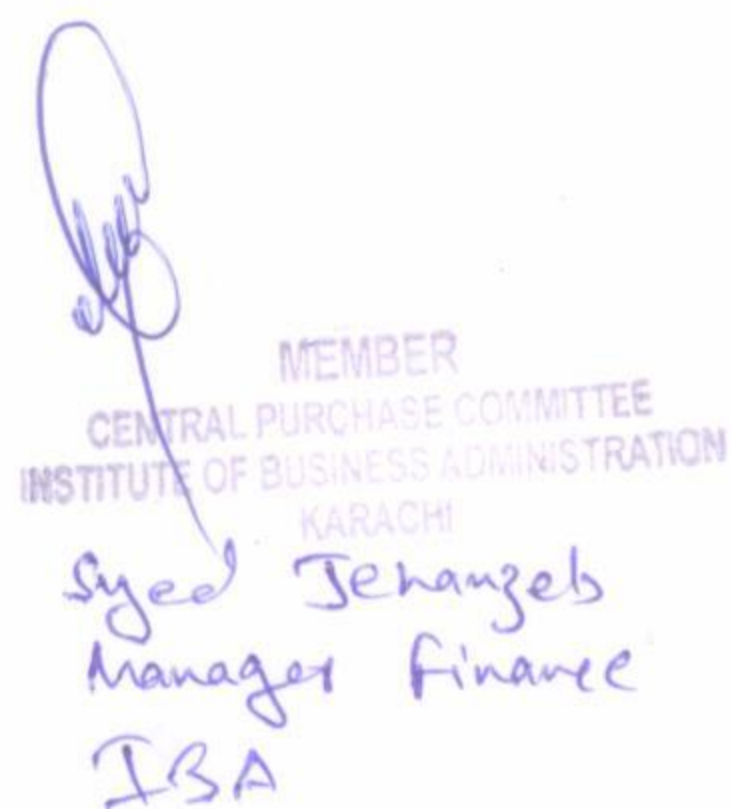 MEMBER
CENTRAL PURCHASE COMMITTEE
INSTITUTE OF BUSINESS ADMINISTRATION
KARACHI
Syed Jehanzeb
Manager Finance
IBA